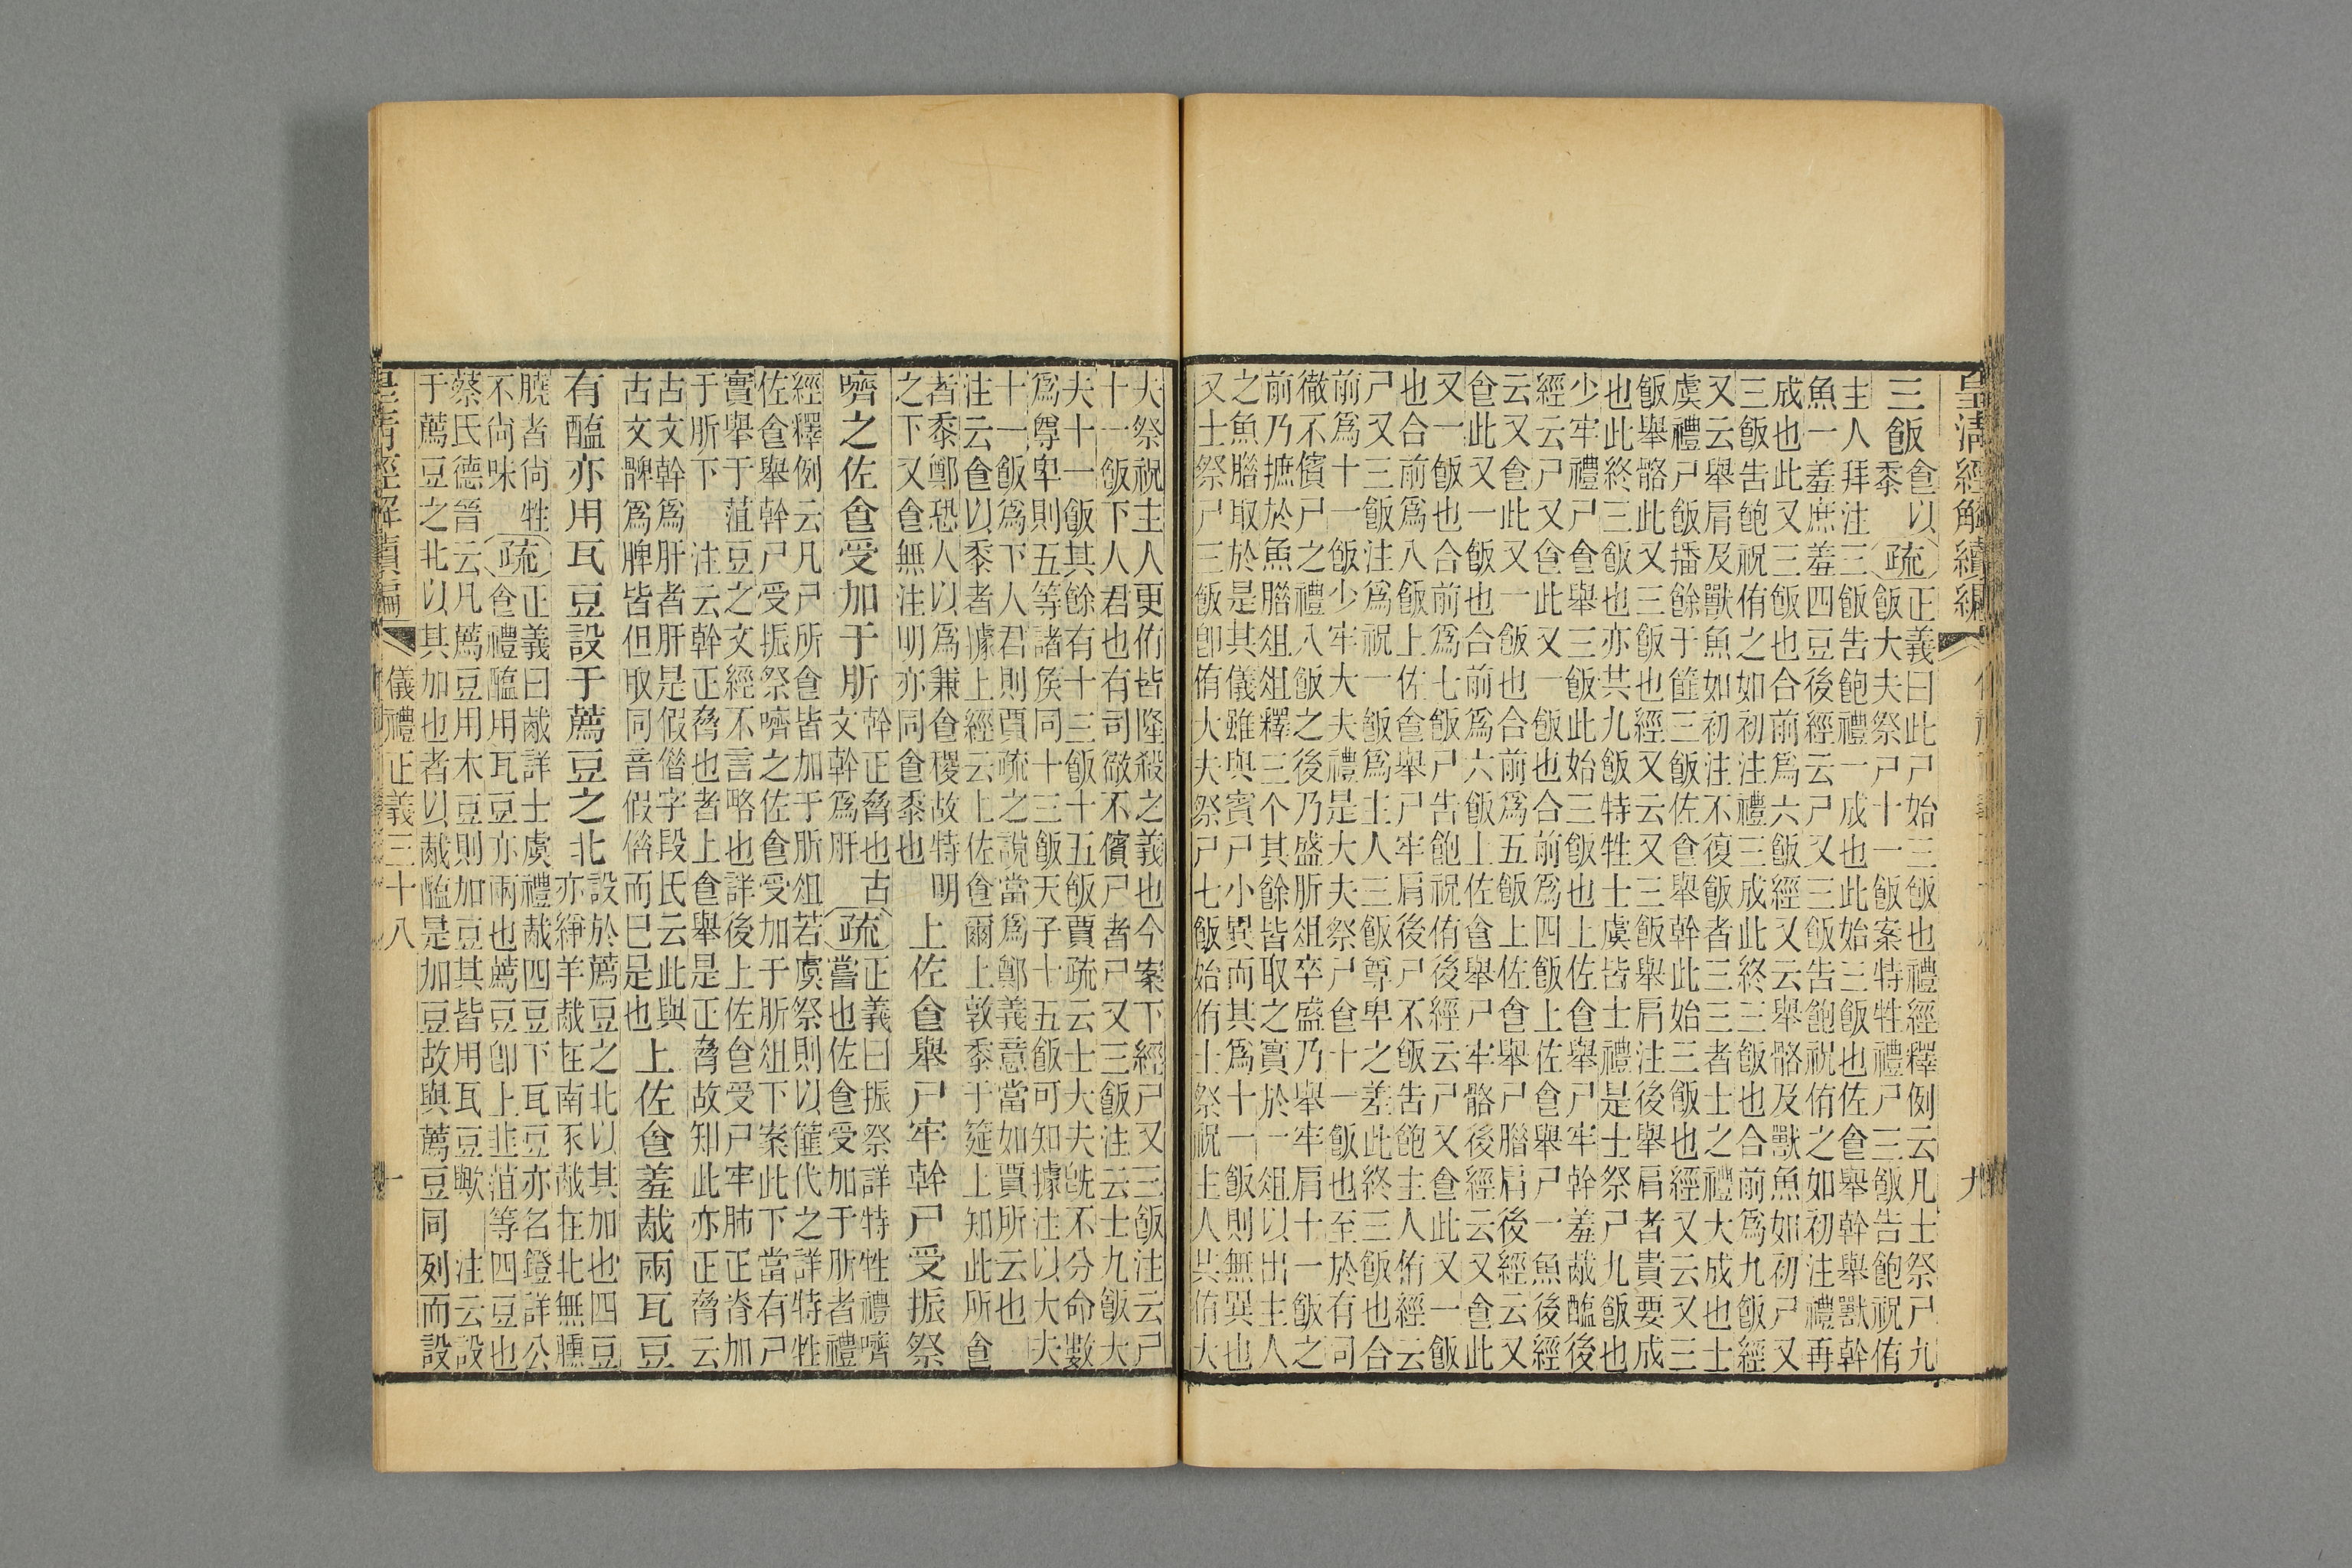 皇清經解續編
九
三飯食以黍疏正義曰此尸始三飯也禮經釋例云凡士祭尸九
飯大夫祭尸十一飯案特牲禮尸三飯告飽祝侑
主人拜注三飯告飽禮一成也此始三飯也佐食舉幹舉獸幹
魚一羞庶羞四豆後經云尸又三飯告飽祝侑之如初注禮再
成也此又三飯也合前爲六飯經又云舉骼及獸魚如初尸又
三飯告飽祝侑之如初注禮三成此終三飯也合前爲九飯經
又云舉肩及獸魚如初注不復飯者三三者士之禮大成也士
虞禮尸飯播餘于篚三飯佐食舉幹此始三飯也經又云又三
飯舉骼此又三飯也經又云又三飯舉肩注後舉肩者貴要成
也此終三飯也亦共九飯特牲士虞皆士禮是士祭尸九飯也
少牢禮尸食舉三飯此始三飯也上佐食舉尸牢幹羞胾醢後
經云尸又食此又一飯也合前爲四飯上佐食舉尸一魚後經
云又食此又一飯也合前爲五飯上佐食舉尸腊肩後經云又
食此又一飯也合前爲六飯上佐食舉尸牢骼後經云又食此
又一飯也合前爲七飯尸告飽祝侑後經云尸又食此又一飯
也合前爲八飯上佐食舉尸牢肩後尸不飯告飽主人侑經云
尸又三飯注爲祝一飯爲主人三飯尊卑之差此終三飯也合
前爲十一飯少牢大夫禮是大夫祭尸食十一飯也至於有司
徹不儐尸之禮八飯之後乃盛肵俎卒盛乃舉牢肩十一飯之
前乃摭於魚腊俎俎釋三个其餘皆取之實於一俎以出主人
之魚腊取於是其儀雖與賓尸小異而其爲十一飯則無異也
又士祭尸三飯卽侑大夫祭尸七飯始侑士祭祝主人共侑大
夫祭祝主人更侑皆隆殺之義也今案下經尸又三飯注云尸
十一飯下人君也有司徹不儐尸者尸又三飯注云士九飯大
夫十一飯其餘有十三飯十五飯賈疏云士大夫旣不分命數
爲尊卑則五等諸侯同十三飯天子十五飯可知據注以大夫
十一飯爲下人君則賈疏之說當爲鄭義意當如賈所云也
注云食以黍者據上經云上佐食爾上敦黍于筵上知此所食
者黍鄭恐人以爲兼食稷故特明
之下又食無注明亦同食黍也
上佐食舉尸牢幹尸受振祭
嚌之佐食受加于肵幹正脅也古文幹爲肝疏正義曰振祭詳特牲禮嚌
嘗也佐食受加于肵者禮
經釋例云凡尸所食皆加于肵俎若虞祭則以篚代之詳特牲
佐食舉幹尸受振祭嚌之佐食受加于肵俎下案此下當有尸
實舉于菹豆之文經不言略也詳後上佐食受尸牢肺正脊加
于肵下 注云幹正脅也者上食舉是正脅故知此亦正脅云
古文幹爲肝者肝是假借字段氏云此與
古文髀爲脾皆但取同音假借而已是也
上佐食羞胾兩瓦豆
有醢亦用瓦豆設于薦豆之北設於薦豆之北以其加也四豆
亦絣羊胾在南豕胾在北無臐
膮者尚牲
不尚味疏正義曰胾詳士虞禮胾四豆下瓦豆亦名鐙詳公
食禮醢用瓦豆亦兩也薦豆卽上韭菹等四豆也
蔡氏德晉云凡薦豆用木豆則加豆其皆用瓦豆歟 注云設
于薦豆之北以其加也者以胾醢是加豆故與薦豆同列而設
皇清經解續編
儀禮正義三十八
十